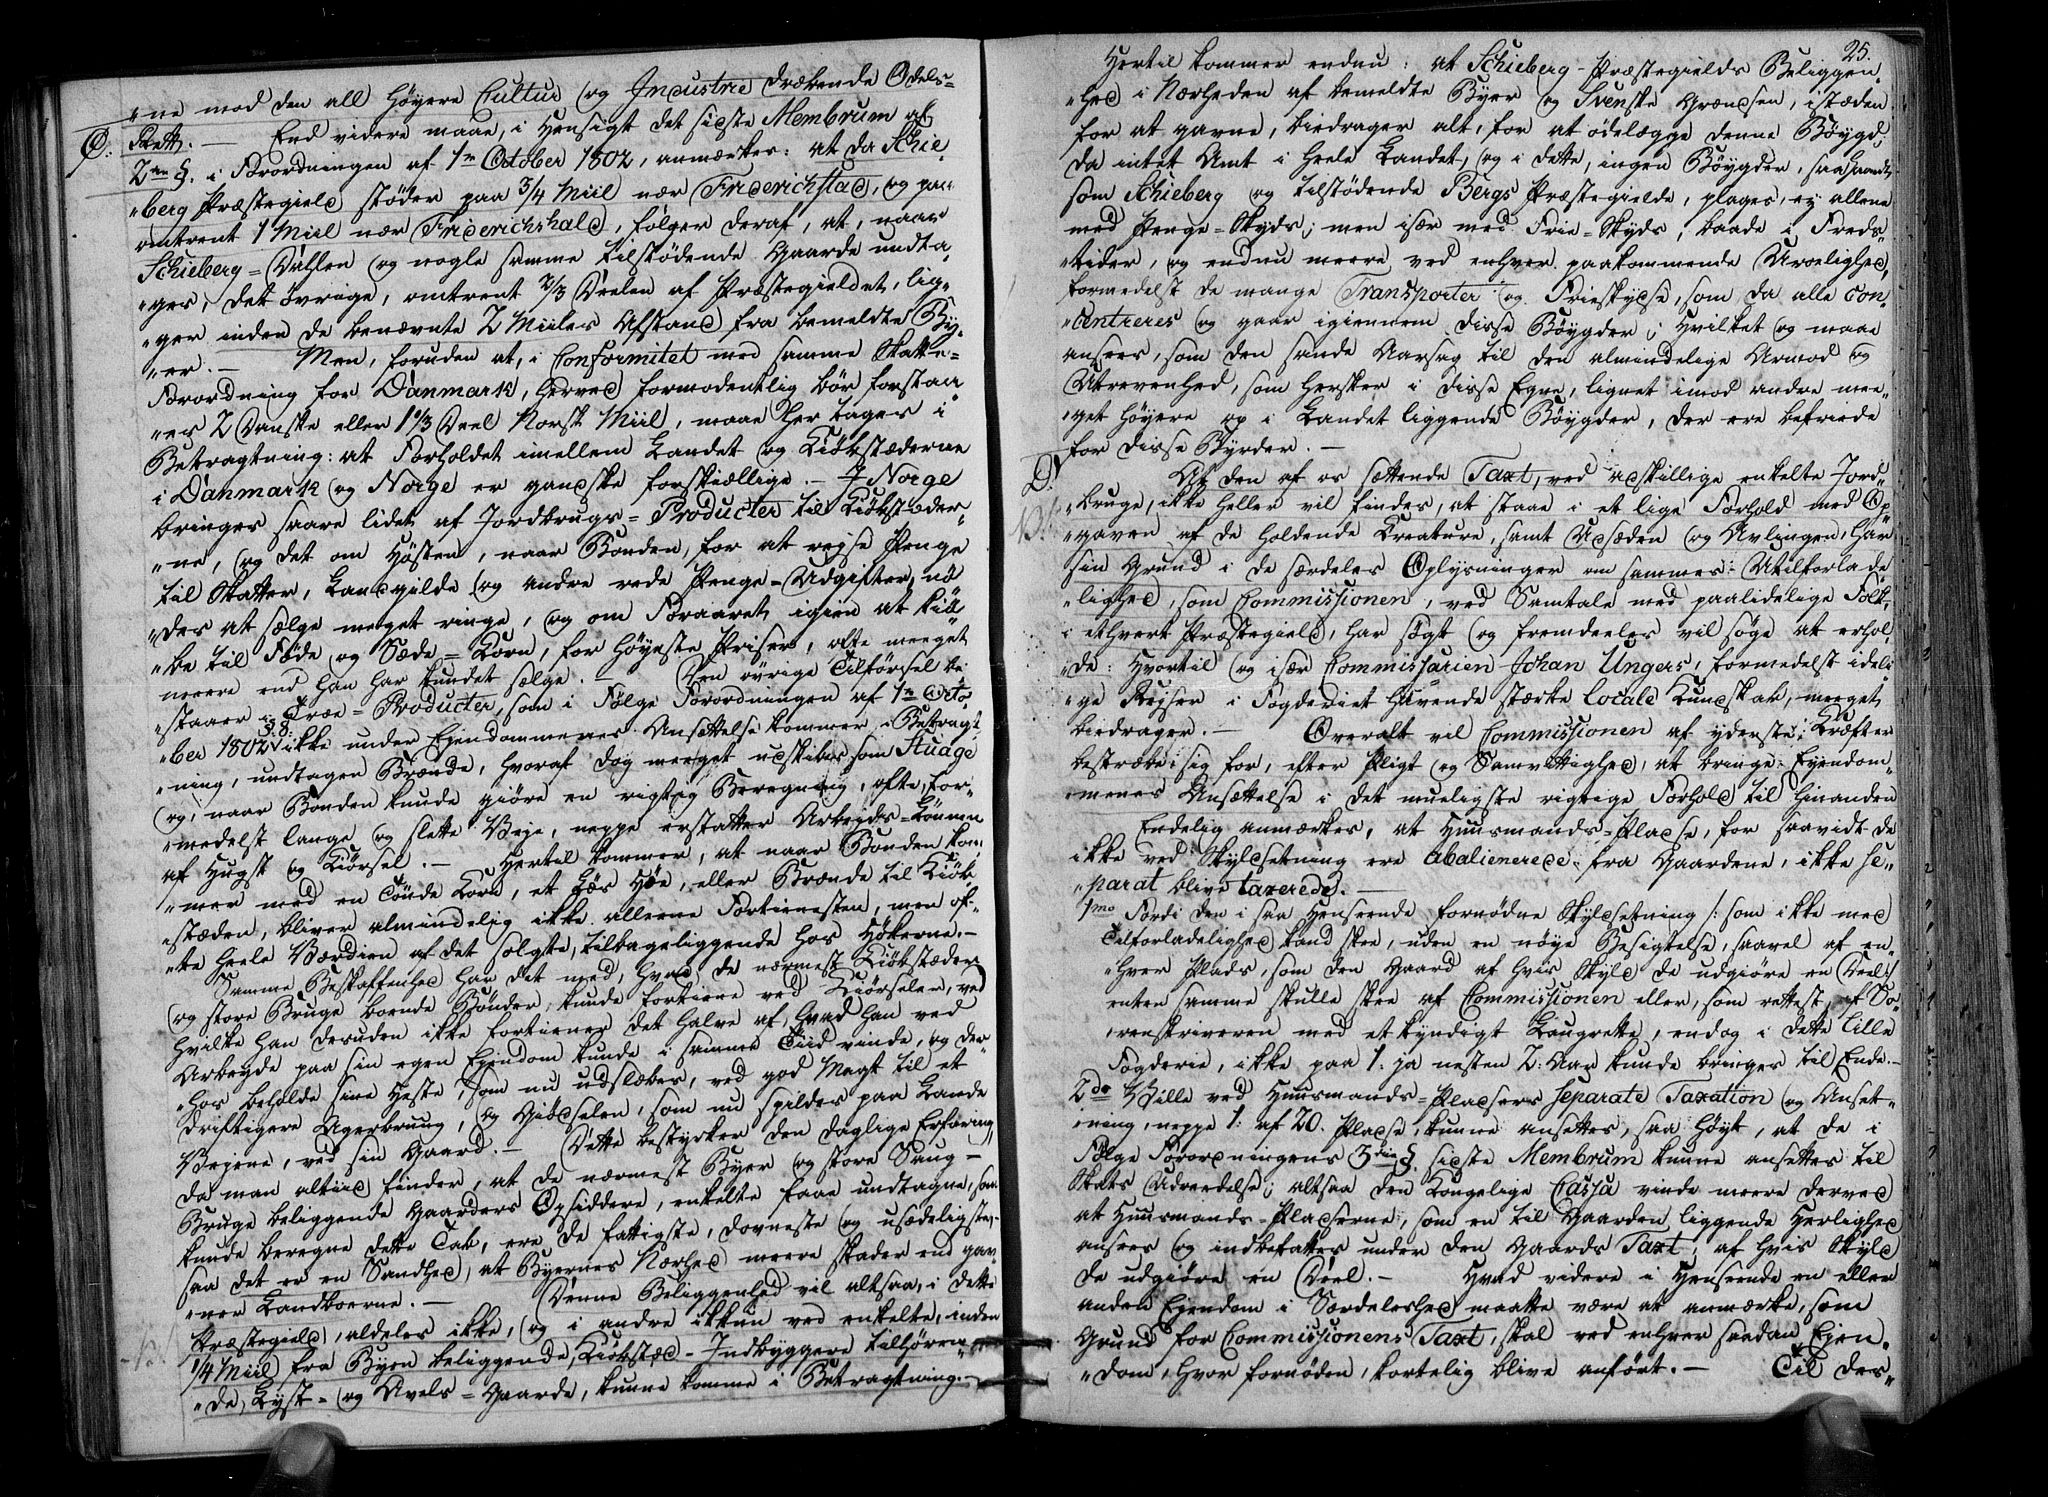 "ne mod den all høyere Cultur og Industrie dræbende Odels-
C: Rett. — End videre maae, i Hensigt det sidste Membrum af
2den §. i Forordningen af 1te October 1802, anmærkes: at da Schie-
"berg Præstegield støder paa 3/4 Miil nær Friderichstad, og paa
omtrent 1 Miil nær Friderichshald, følger deraf, at, naar
Schieberg-Dahlen og nogle samme tilstødende Gaarde undta-
"ges, det øvrige, omtrent 2/3 Deelen af Præstegieldet, lig-
"ger inden de benævnte 2 Miiles Afstand fra bemeldte By-
"er. — Men, foruden at, i Conformitet med samme Skatte-
Forordning for Danmark, herved formodentlig bør forstaa-
"es 2 Danske eller 1 1/3 Deel Norsk Miil, maae her tages i
Betragtning: at Forholdet imellem Landet og Kiøbstæderne
i Danmark og Norge er gandske forskiællige. — I Norge
bringes saare lidet af Jordbrugs-Producter til Kiøbstæder-
"ne, og det om Høsten, naar Bonden, for at reyse Penge
til Skatter, Landgilde og andre rede Penge-Udgifter, nø-
"des at sælge meget ringe, og om Foraaret igien at kiø-
"be til Føde og Sæde-Korn, for høyeste Priser, ofte meeget
meere end han har kundet sælge. — Den øvrige Tilførsel be-
"staaer i Træe-Producter, som i Følge Forordningen af 1te Octo-
"ber 1802 §: 8: ikke under Ejendommenes Ansættelse kommer i Betragt-
"ning, undtagen Brænde, hvoraf dog meeget udskibes som Stuage
og, naar Bonden kunde giøre en rigtig Beregning, ofte, for-
"medelst lange og slette Veje, neppe erstatter Arbejds-Lønnen
af Hugst og Kiørsel. — Hertil kommer, at naar Bonden kom-
"mer med en Tønde Korn, et Læs Høe, eller Brænde til Kiøb-
"stæden, bliver almindelig ikke alleene Fortienesten, men of-
"te heele Værdien af det solgte, tilbageliggende hos Høkerne. —
Samme Beskaffenhed har det med, hvad de nærmest Kiøbstæder
og store Bruge boende Bønder, kunde fortiene ved Kiørselen, ved
hvilke han desuden ikke fortiener det halve af, hvad han ved
Arbeyde paa sin egen Ejendom kunde i samme Tiid vinde, og der-
"hos beholde sine Heste, som nu udslæbes, ved god Magt til et
driftigere Agerbruug, og Giødselen, som nu spildes paa Lande
Vejene, ved sin Gaard. — Dette bestyrker den daglige Erfaring,
da man altiid finder, at de nærmest Byer og store Saug-
Bruge beliggende Gaarders Opsiddere, enkelte faae undtagne, som
kunde beregne dette Tab, ere de fattigste, dovneste og usædeligste;
saa det er en Sandhed, at Byernes Nærhed meere skader end gav-
"ner Landboerne. — Denne Beliggenhed vil altsaa, i dette
Præstegield, aldeles ikke, og i andre ikkun ved enkelte, inden
1/4 Miil fra Byen beliggende, Kiøbstæd-Indbyggere tilhøren-
"de, Lyst- og Avels-Gaarde, kunne komme i Betragtning. —
25.
Hertil kommer endnu: at Schieberg-Præstegields Beliggen-
"hed i Nærheden af bemeldte Byer og Svenske Grændsen, istæden
for at gavne, biedrager alt, for at ødelægge denne Bøygd,
da intet Amt i heele Landet, og i dette, ingen Bøygder, saa haardt,
som Schieberg og tilstødende Bergs Præstegielde, plages, ey allene
med Penge-Skyds, men især med Frie-Skyds, baade i Freds-
"tider, og endnu meere ved enhver paakommende Uroelighed,
formedelst de mange Transporter og Frieskydse, som da alle con-
"centreres og gaar igiennem disse Bøygder; hvilket og maae
ansees, som den sande Aarsag til den almindelige Armod og
Utrevenhed, som hersker i disse Egne, lignet imod andre mee-
"get høyere op i Landet liggende Bøygder, der ere befriede
for disse Byrder. —
D: At den af os sættende Taxt, ved adskillige enkelte Jord-
"bruge, ikke heller vil findes, at staae i et lige Forhold med Op-
"gaven af de holdende Kreature, samt Udsæden og Avlingen, har
sin Grund i de særdeles Oplysninger om sammes Utilforlade-
"lighed, som Commissionen, ved Samtale med paalidelige Folk,
i ethvert Præstegield, har søgt og fremdeeles vil søge at erhol-
"de: hvortil og især Commissarien Johan Ungers, formedelst ideli-
"ge Reyser i Fogderiet havende stærke locale Kundskab, meeget
biedrager. — Overalt vil Commissionen af yderste Kræfter
bestræbe sig for, efter Pligt og Samvittighed, at bringe Ejendom-
"menes Ansættelse i det mueligste rigtige Forhold til hinanden
Endelig anmærkes, at Huusmands-Pladse, for saavidt de
ikke ved Skyldsetning ere abalienerede fra Gaardene, ikke se-
"parat blive taxerede. —
1mo Fordi den i saa Henseende fornødne Skyldsetning /: som ikke med
Tilforladelighed kand skee, uden en nøye Besigtelse, saavel af en-
"hver Plads, som den Gaard af hvis Skyld de udgiøre en Deel :/
enten samme skulle skee af Commissionen eller, som rettest, af So-
"renskriveren med et kyndigt Laugrette, endog i dette lille
Fogderie, ikke paa 1: ja nesten 2: Aar kunde bringes til Ende. —
2do Ville ved Huusmands-Pladsers separate Taxation og Anset-
"ning, neppe 1: af 20. Pladse, kunne ansettes, saa høyt, at de i
Følge Forordningens 3die §. sidste Membrum kunne ansettes til
Skats Udredelse; altsaa den Kongelige Cassa vinde meere derved
at Huusmands-Pladserne, som en til Gaarden liggende Herlighed
ansees og indbefattes under den Gaards Taxt, af hvis Skyld
de udgiøre en Deel. — Hvad videre i Henseende en eller
anden Ejendom i Særdeleshed maatte være at anmærke, som
Grund for Commissionens Taxt, skal ved enhver saadan Ejen-
"dom, hvor fornøden, kortelig blive anført. — Til des-